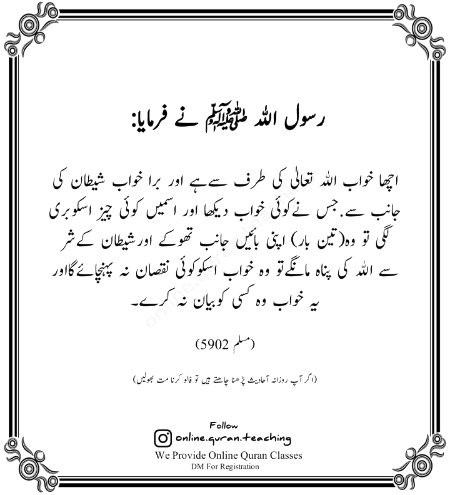 رسول اللہ ﷺ نے فرمایا:
اچھا خواب اللہ تعالیٰ کی طرف سےہے اور برا خواب شیطان کی
جانب سے.جس نےکوئی خواب دیکھا اور اسمیں کوئی چیز اسکوبری
لگی تو وہ(تین بار) اپنی بائیں جانب تھوکے اورشیطان کےشر
سے اللہ کی پناہ مانگےتو وہ خواب اسکوکوئی نقصان نہ پہنچائےگااور
یہ خواب وہ کسی کوبیان نہ کرے۔
(مسلم 5902)
(اگر آپ روزانہ آحادیث پڑھنا چاہتے ہیں تو فالو کرنا مت بھولیں)
Follow
online.quran.teaching
We Provide Online Quran Classes
DM For Registration